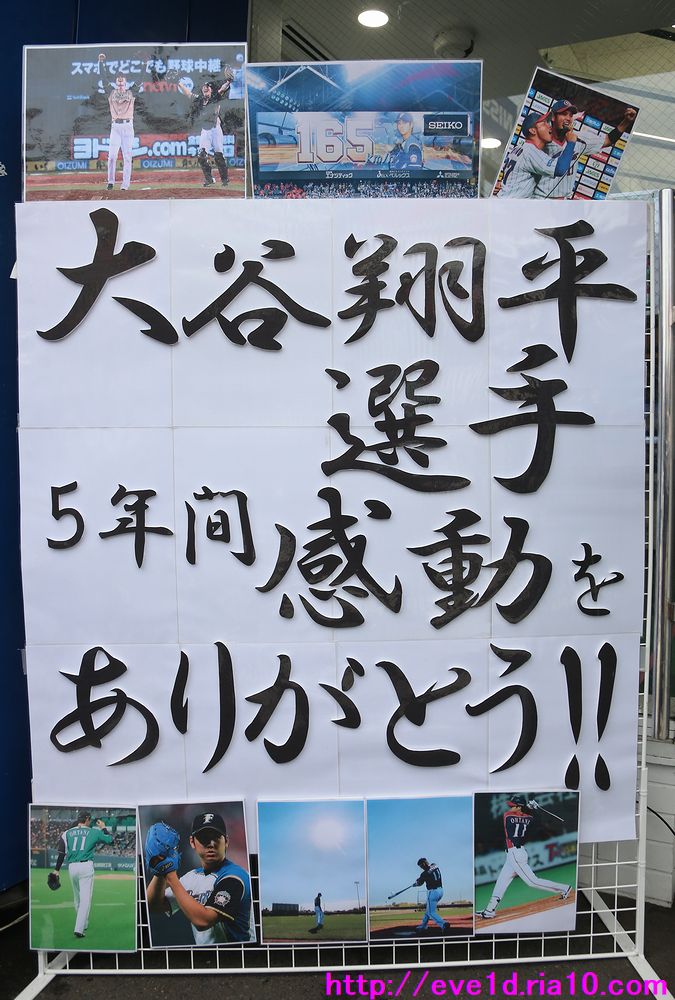 スマホでどこでも野球中継
ヨドバシ.com
OIZUMI
OIZUMI
165
SEIKO
大谷翔平
選手
5年間感動を
ありがとう!!
OHTANI
11
F
OHTANI
11
http://eve1d.ria10.com